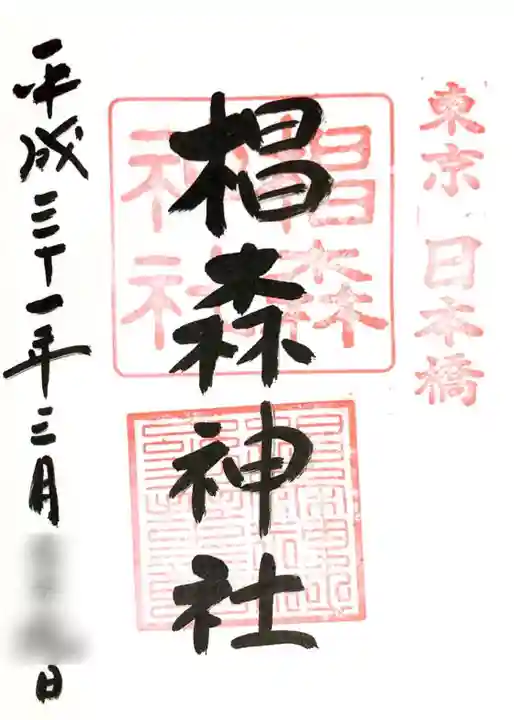 東京 日本橋
椙森神社
椙森神社
平成三十一年三月 日